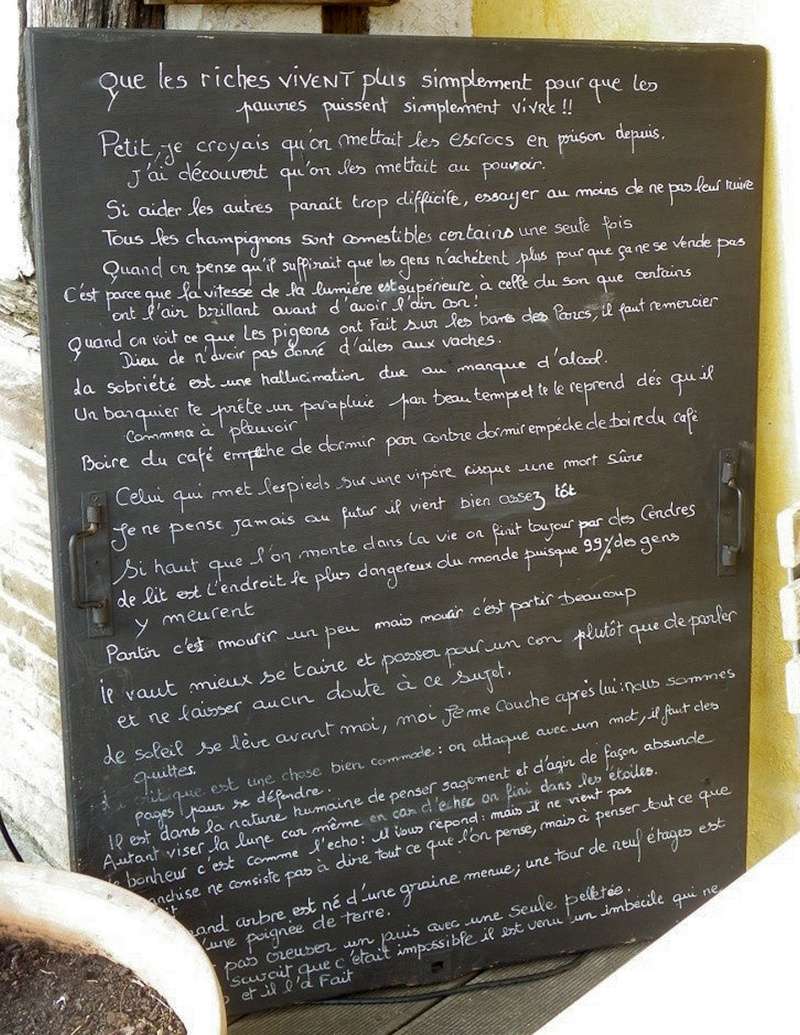 Que les riches VIVENT plus simplement pour que les
pauvres puissent simplement vivre !!
Petit, je croyais qu'on mettait les escrocs en prison depuis,
J'ai découvert qu'on les mettait au pouvoir.
Si aider les autres parait trop difficile, essayer au moins de ne pas leur nuire
Tous les champignons sont comestibles certains une seule fois
Quand on pense qu'il suffirait que les gens n'achetent plus pour que ça ne se vende pas
C'est parce que la vitesse de la lumière est supérieure à celle du son que certains
ont l'air brillant avant d'avoir l'air con !
Quand on voit ce que les pigeons ont Fait sur les bancs des Parcs, il faut remercier
Dieu de n'avoir pas donné d'ailes aux vaches.
La sobriété est une hallucination due au manque d'alcool.
Un banquier te prête un parapluie par beau temps et te le reprend dés qu'il
commence à pleuvoir
Boire du café empêche de dormir par contre dormir empéche de boire du café
Celui qui met les pieds sur une vipère risque une mort sûre
Je ne pense jamais au futur il vient bien assez tôt
Si haut que l'on monte dans la vie on finit toujour par des Cendres
Le lit est l'endroit le plus dangereux du monde puisque 99% des gens
y meurent
Partir c'est mourir un peu mais mourir c'est partir beaucoup
il vaut mieux se taire et passer pour un con plutôt que de parler
et ne laisser aucun doute à ce sujet.
Le soleil se lève avant moi, moi je me couche après lui : nous sommes
quittes.
est une chose bien commode : on attaque avec un mot, il faut des
pages pour se défendre.
Il est dans la nature humaine de penser sagement et d'agir de façon absurde
Autant viser la lune car même en cas d'echec on fini dans les étoiles.
bonheur c'est comme l'echo : il vous répond : mais il ne vient pas
ne consiste pas à dire tout ce que l'on pense, mais à penser tout ce que
arbre est né d'une graine menue ; une tour de neuf étages est
d'une poignée de terre.
pas creuser un puis avec une seule pelletée.
savait que c'était impossible il est venu un imbécile qui ne
et il l'a Fait